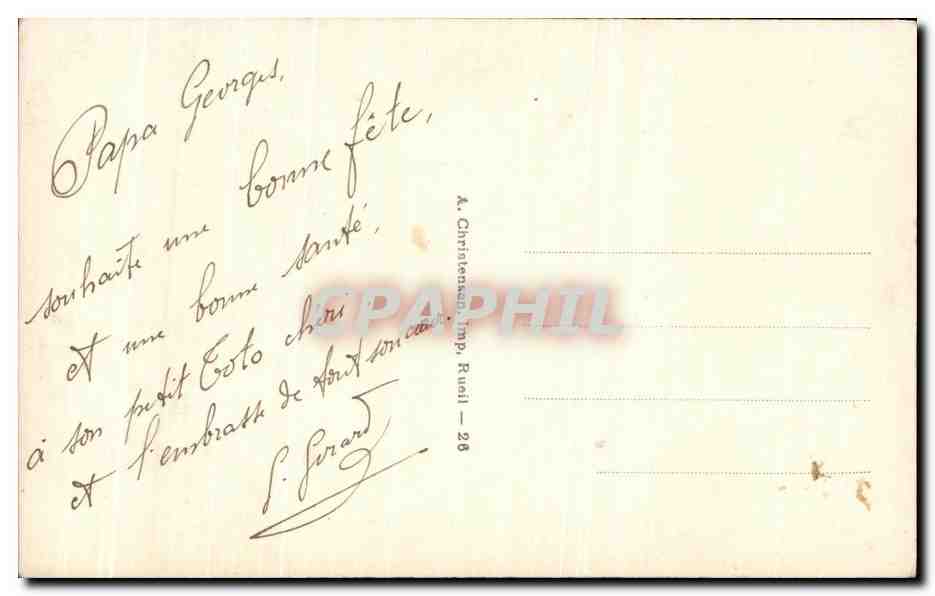 Papa Georges,
souhaite une bonne fête,
et une bonne santé,
à son petit Toto chéri
et l'embrasse de tout son cœur.
G. Girard
A. Christensen, Imp, Rueil — 26
CPAPHIL